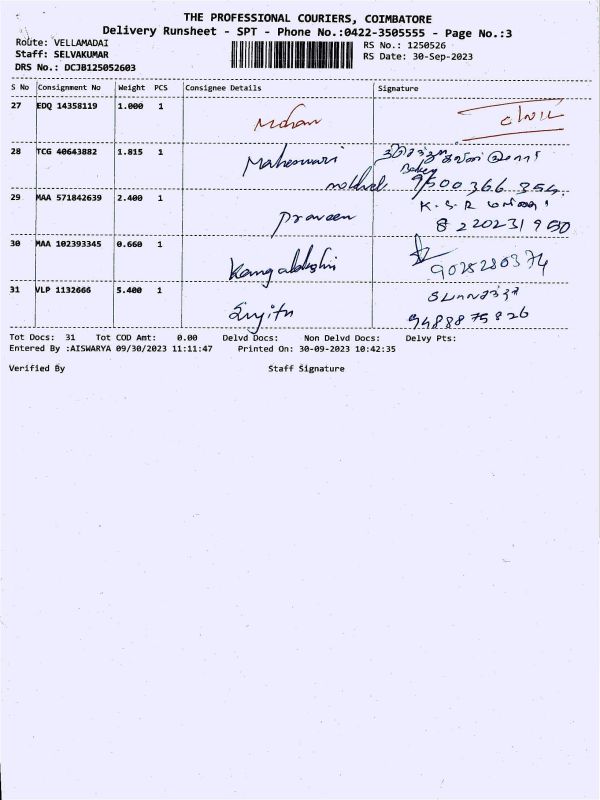 THE PROFESSIONAL COURIERS, COIMBATORE
Delivery Runsheet - SPT - Phone No.:0422-3505555 - Page No.:3
Route: VELLAMADAI
RS No.: 1250526
Staff: SELVAKUMAR
RS Date: 30-Sep-2023
DRS No.: DCJB125052603
S No Consignment No Weight PCS Consignee Details Signature
27 EDQ 14358119 1.000 1 Mohan
28 TCG 40643882 1.815 1 Maheswari
9500366354
29 MAA 571842639 2.400 1 Praveen K.S.R
8220231950
30 MAA 102393345 0.660 1
9025280374
31 VLP 1132666 5.400 1
9488875826
Tot Docs: 31 Tot COD Amt: 0.00 Delvd Docs: Non Delvd Docs: Delvy Pts:
Entered By :AISWARYA 09/30/2023 11:11:47 Printed On: 30-09-2023 10:42:35
Verified By Staff Signature